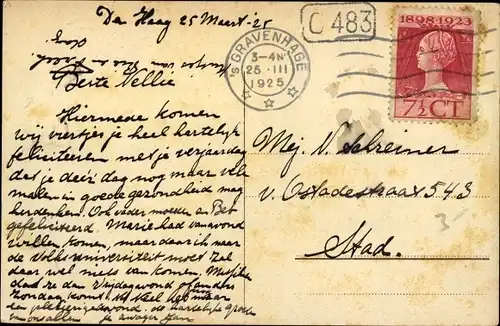 Den Haag 25 Maart '25
Beste Nellie
Hiermede komen
wij viertjes je heel hartelijk
feliciteeren met je verjaardag
dat je deze dag nog maar vele
malen in goede gezondheid mag
herdenken. Ook vader moeder en Bet
gefeliciteerd. Marie had vanavond
willen komen, maar daar ik naar
de Volksuniversiteit moet zal
daar wel niets van komen. Misschien
dat ze dan Vrijdagavond of anders
Zondag komt.
de hartelijke groeten
van ons allen je zwager Jan
C 483
'S GRAVENHAGE
3-4N
25 III
1925
1898-1923
7½ CT
Mej. N. Schreiner
v. Ostadestraat 543
Stad.
3-